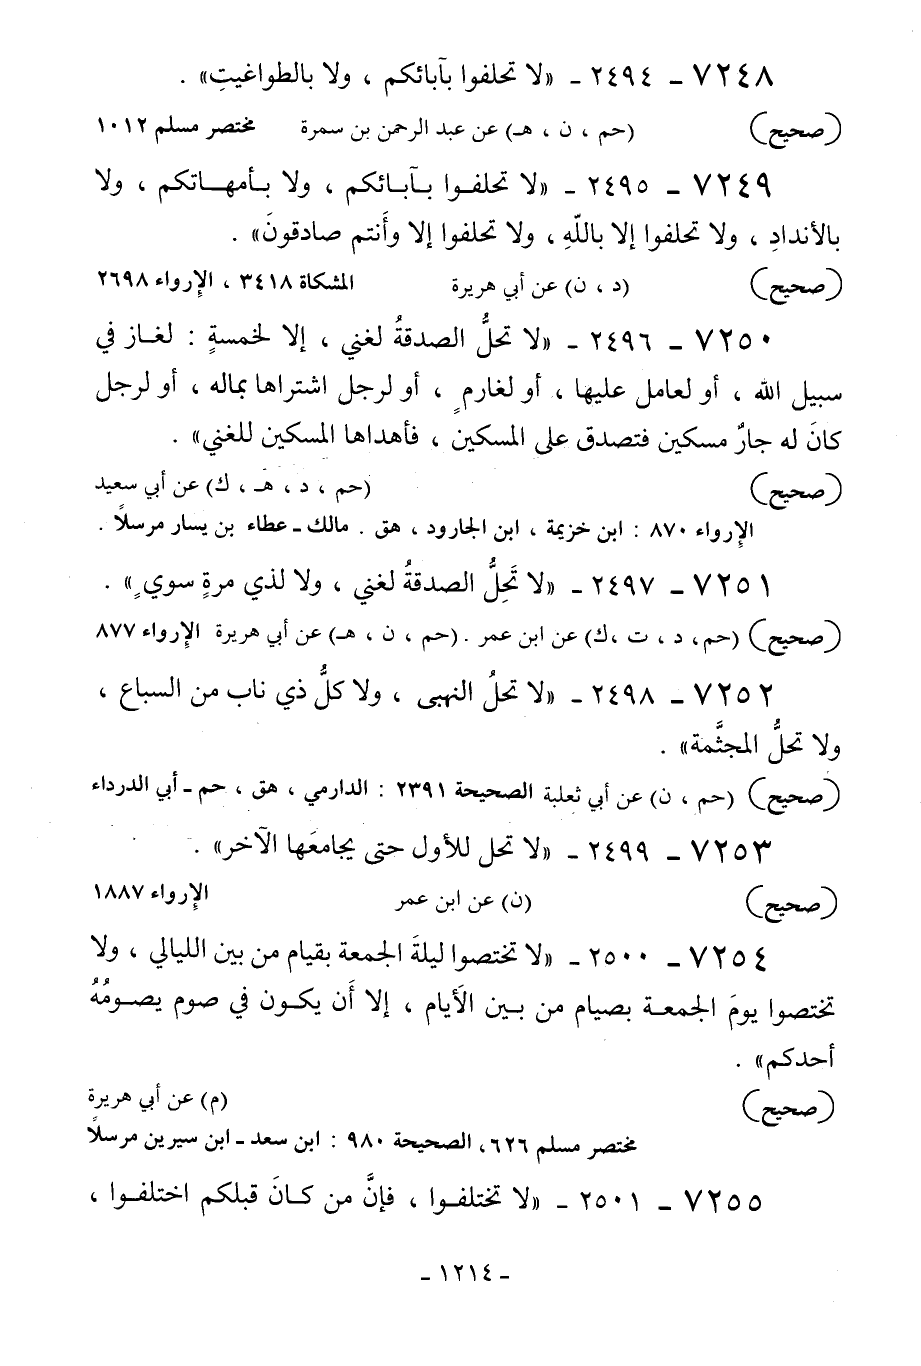 ٧٢٤٨ - ٢٤٩٤ - «لا تحلفوا بآبائكم ، ولا بالطواغيتِ» .
(صحيح) (حم ، ن ، هـ) عن عبد الرحمن بن سمرة مختصر مسلم ١٠١٢
٧٢٤٩ - ٢٤٩٥ - «لا تحلفوا بآبائكم ، ولا بأمهاتكم ، ولا
بالأندادِ ، ولا تحلفوا إلا باللّهِ ، ولا تحلفوا إلا وأَنتم صادقونَ» .
(صحيح) (د ، ن) عن أبي هريرة المشكاة ٣٤١٨ ، الإرواء ٢٦٩٨
٧٢٥٠ - ٢٤٩٦ - «لا تحلُّ الصدقةُ لغني ، إلا لخمسةٍ : لغاز في
سبيل الله ، أو لعامل عليها ، أو لغارمٍ ، أو لرجل اشتراها بماله ، أو لرجل
كانَ له جارٌ مسكين فتصدق على المسكين ، فأهداها المسكين للغني» .
(صحيح) (حم ، د ، هـ ، ك) عن أبي سعيد
الإرواء ٨٧٠ : ابن خزيمة ، ابن الجارود ، هق . مالك - عطاء بن يسار مرسلاً .
٧٢٥١ - ٢٤٩٧ - «لا تَحِلُّ الصدقةُ لغني ، ولا لذي مرةٍ سويٍ» .
(صحيح) (حم، د ، ت ،ك) عن ابن عمر . (حم ، ن ، هـ) عن أبي هريرة الإرواء ٨٧٧
٧٢٥٢ - ٢٤٩٨ - «لا تحلُ النهبى ، ولا كلُّ ذي ناب من السباع ،
ولا تحلُّ المجثَّمة» .
(صحيح) (حم ، ن) عن أبي ثعلبة الصحيحة ٢٣٩١ : الدارمي ، هق ، حم - أبي الدرداء
٧٢٥٣ - ٢٤٩٩ - «لا تحل للأول حتى يجامعَها الآخر» .
(صحيح) (ن) عن ابن عمر الإرواء ١٨٨٧
٧٢٥٤ - ٢٥٠٠ - «لا تختصوا ليلةَ الجمعة بقيام من بين الليالي ، ولا
تختصوا يومَ الجمعة بصيام من بين الأَيام ، إلا أَن يكون في صوم يصومُهُ
أحدكم» .
(صحيح) (م) عن أبي هريرة
مختصر مسلم ٦٢٦، الصحيحة ٩٨٠ : ابن سعد - ابن سيرين مرسلاً
٧٢٥٥ - ٢٥٠١ - «لا تختلفوا ، فإنَّ من كانَ قبلكم اختلفوا ،
- ١٢١٤ -